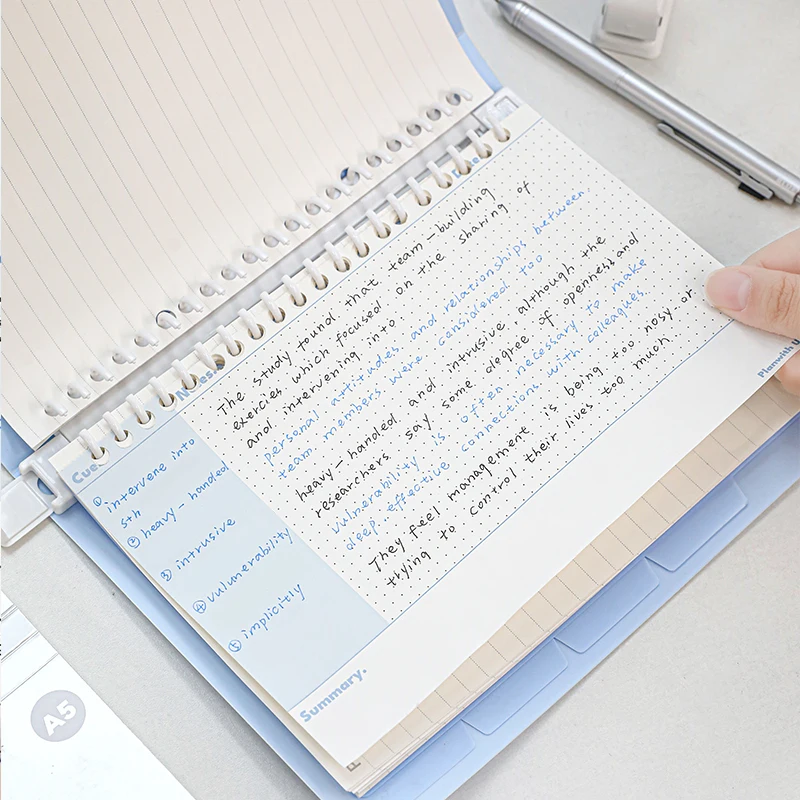 Date
Notes
The study found that team-building
exercies which focused on the sharing of
and intervening into:
personal attitudes and relationships between
team members were considered too
heavy-handed and intrusive, although the
researchers say some degree of openness and
vulnerability is often necessary to make
deep, effective connections with colleagues
They feel management is being too nosy or
trying to control their lives too much
Cue
① intervene into
sth
② heavy-handed
③ intrusive
④ vulunerability
⑤ implicitly
Summary.
Planwith U
A5